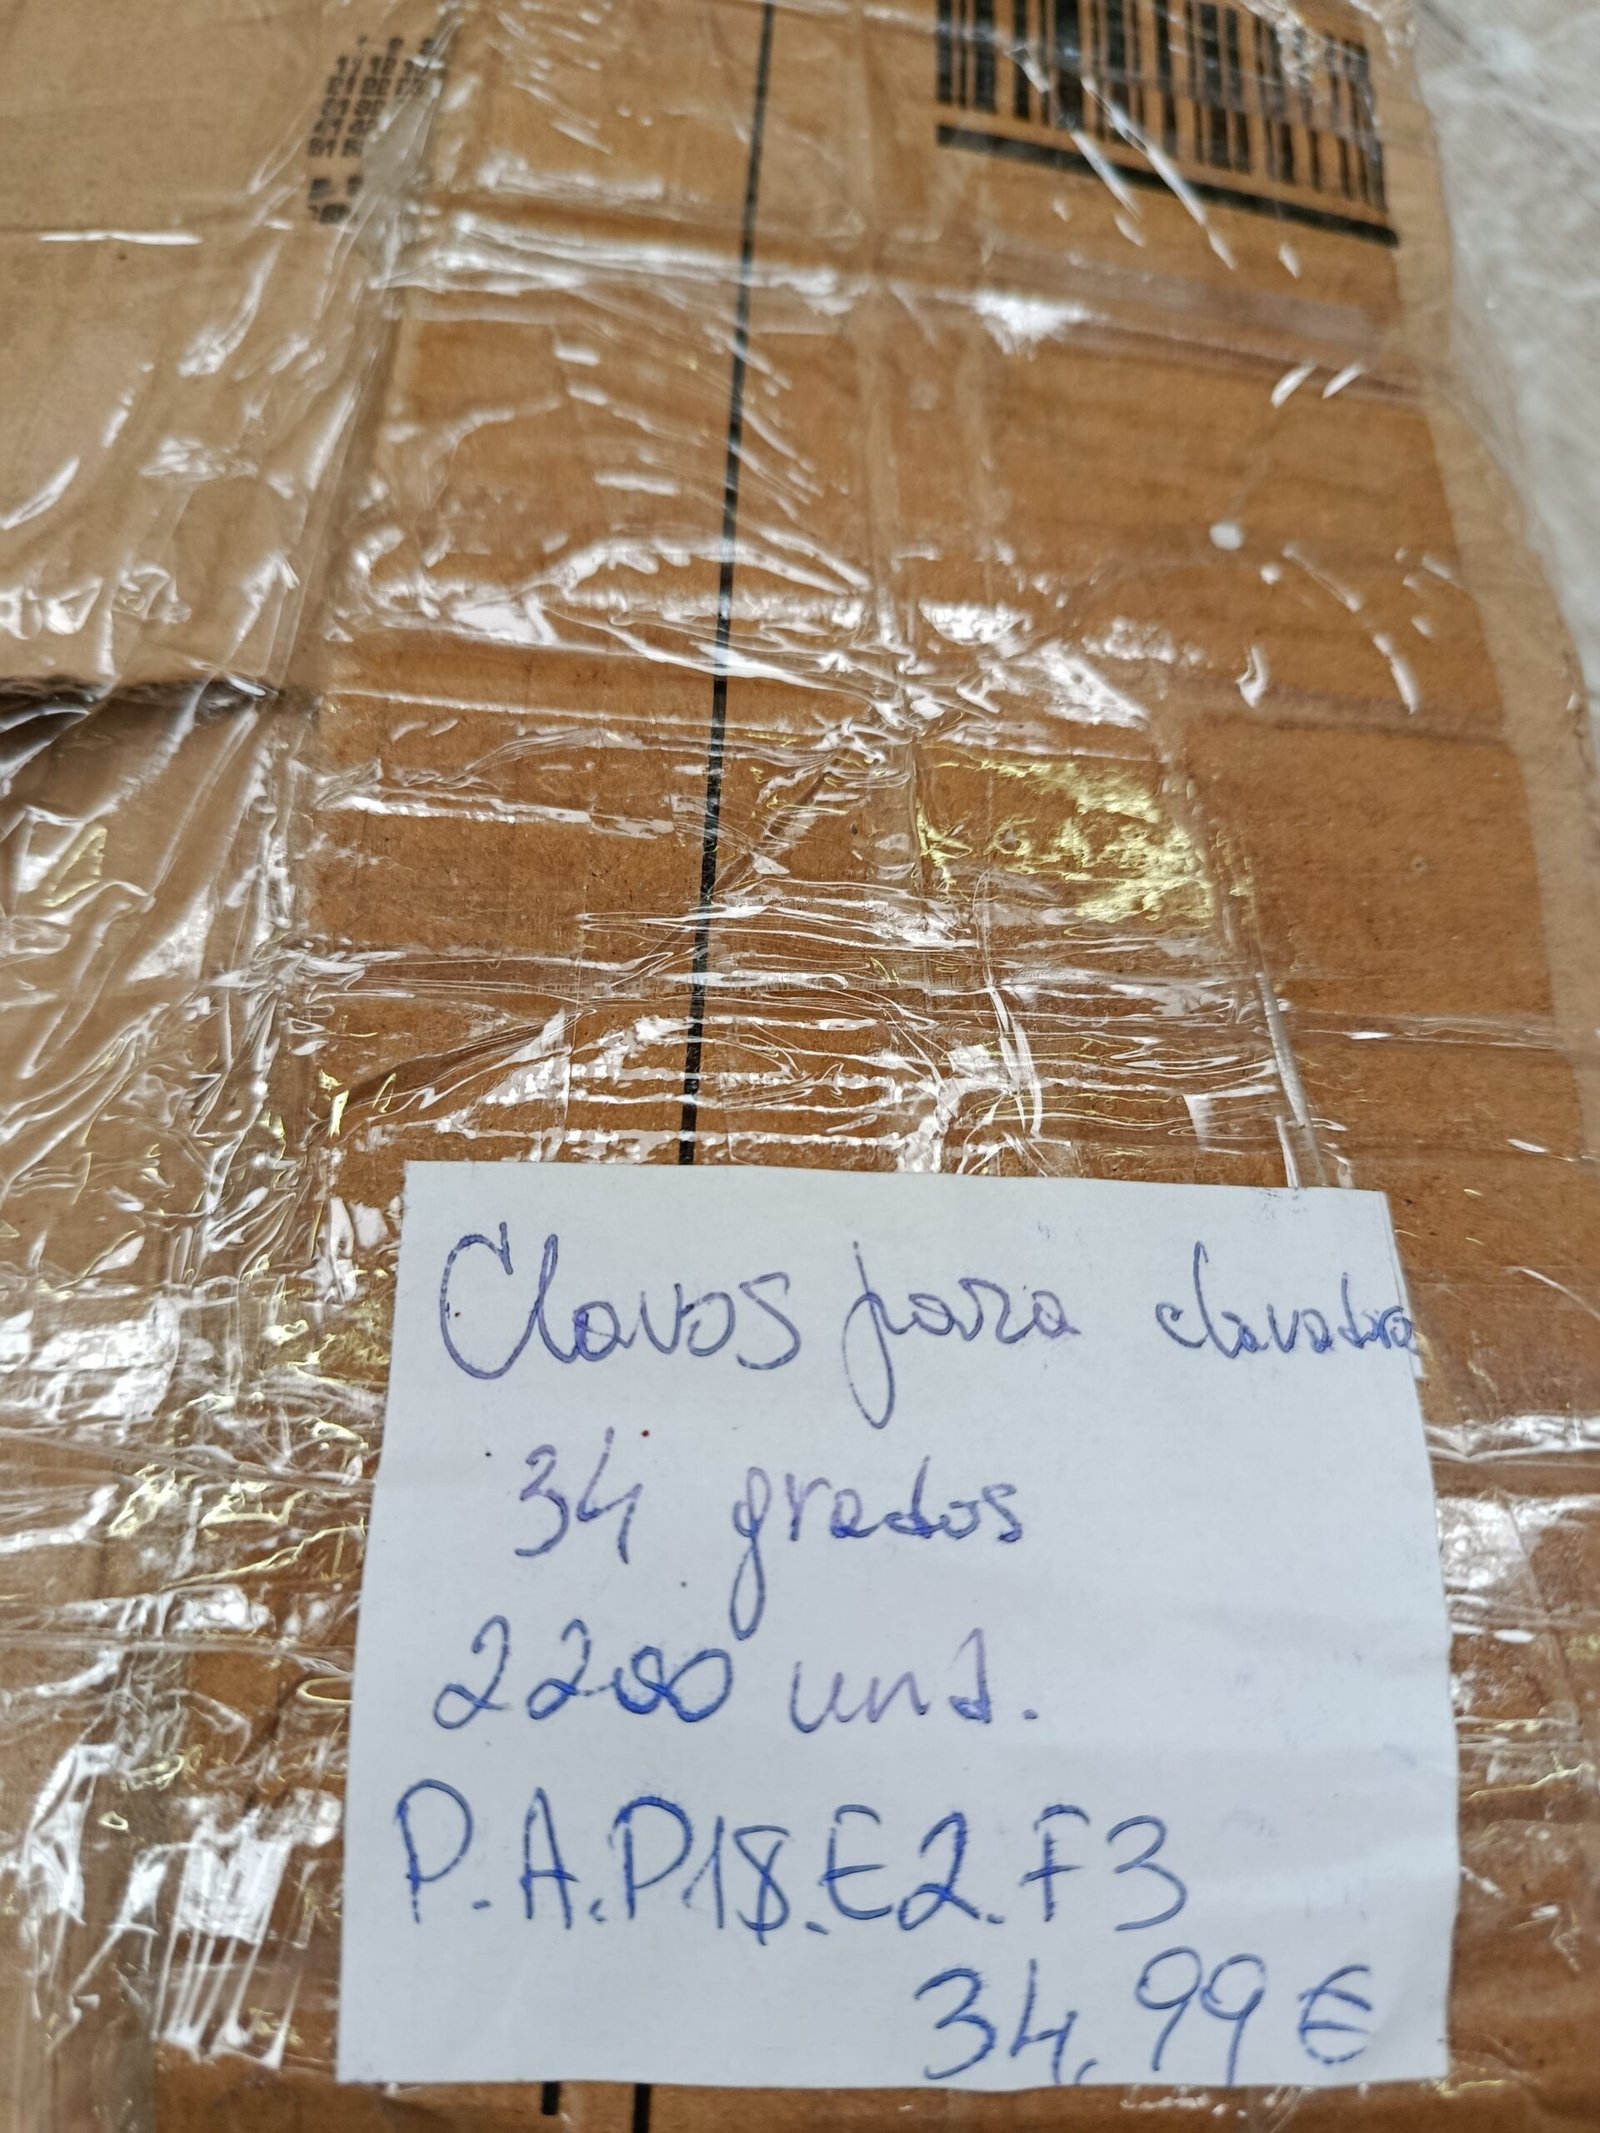 Clavos para clavadora
34 grados
2200 und.
P.A.P18.E2.F3
34.99 €